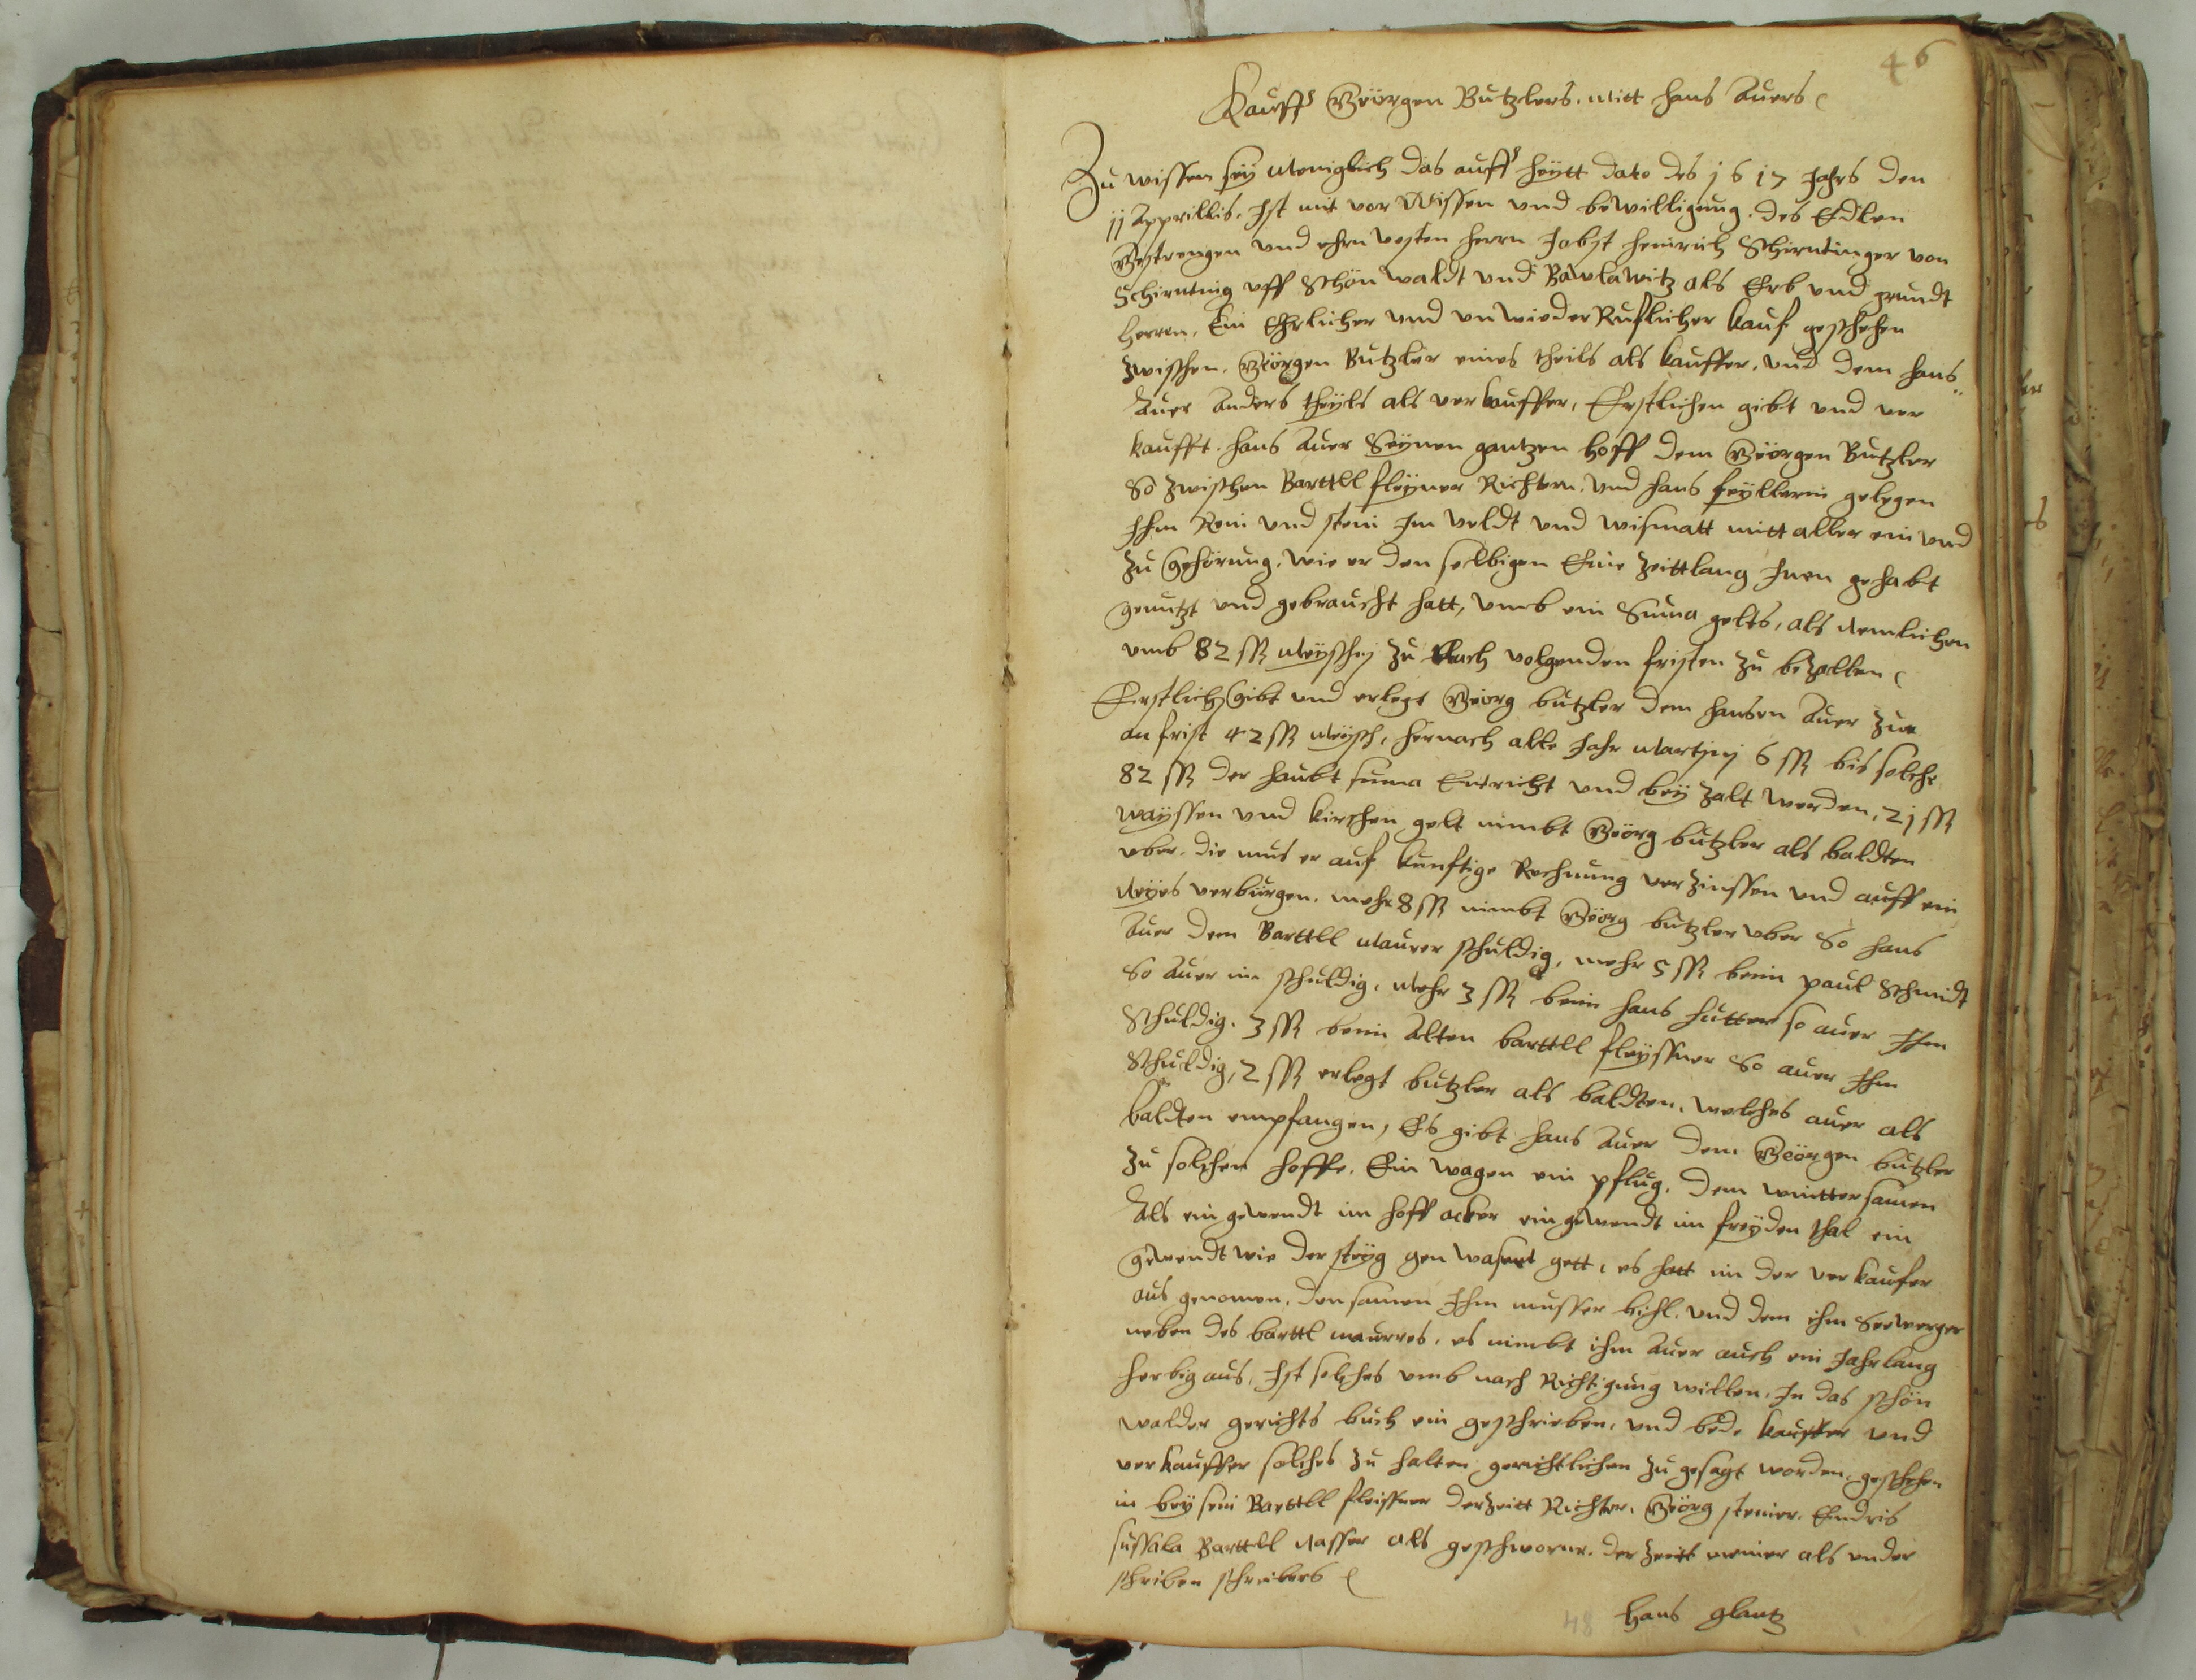 46
Kauff Geörgen Butzlers mitt hans Auers
Zu wissen sey Meniglich das auff heytt dato des 1617 Jahrs den
11 Apprillis, Ist mit vor Wissen vnd bewilligung des Edlen
Gestrengen vnd ehrn vesten herrn Jobst heinrich Schirntinger von
Schirnting vff Schön waldt vnd Bawlawitz als Erb vnd grundt
herren, Ein Ehrlicher vnd vnwiederRuflicher kauf geschehen
zwischen Geörgen Butzler eines theils als kauffer, vnd dem hans
Auer anders theyls als verkauffer, Erstlichen gibt vnd ver
kaufft hans Auer Seynen gantzen hoff dem Geörgen Butzler
So zwischen Barttll fleyner Richtern vnd hans feyllerin gelegen
Ihm Rein vnd stein Im veldt vnd wismatt mitt aller ein vnd
zu gehörung, wie er den selbigen Eine zeittlang Inen gehabt
genutzt vnd gebraucht hatt, vmb ein Suma gelts, als Nemlichen
vmb 82 ß Meyschs zu Nach volgenden fristen zu bezallen
Erstlich gibt vnd erlegt Geörg butzler dem hansen Auer zur
an frist 42 ß Meysch, hernach alle Jahr Martyny 6 ß bis solche
82 ß der haubt suma Entricht vnd bey zalt werden, 21 ß
wayssen vnd kirchen gelt nimbt Geörg butzler als baldten
vber, die mus er auf kunftige Rechnung verzinssen vnd auff ein
Neyes verburgen, mehr 8 ß nimbt Geörg butzler vber So hans
Auer dem Barttll Maurer schuldig, mehr 5 ß beim paul Schmidt
So Auer im schuldig, Mehr 3 ß beim hans hutter so auer Ihm
Schuldig, 3 ß beim Alten barttll fleyssner So auer Ihm
Schuldig, 2 ß erlegt butzler als baldten, welches auer als
baldten empfangen, Es gibt hans Auer dem Geörgen butzler
zu solchen hoffe, Ein wagen ein pflug, dem winttersamen
Als ein gewendt im hoff acker ein gewendt im freyden thal ein
gewendt wie der steyg gen gett, es hatt im der verkaufer
aus genomen, den samen Ihm musser bihl, vnd dem ihm
neben des barttl maurres, es nimbt ihm Auer auch ein Jahrlang
herbig aus, Ist solches vmb nach Richtigung willen, In das schön
walder gerichts buch ein geschrieben, vnd bede kauffer vnd
verkauffer solches zu halten gerichtlichen zu gesagt worden, geschehen
in bey sein Barttll fleissner derzeitt Richter, Geörg steiner, Endris
sussala Barttll Nasser als geschworne, der zeitt meiner als vnder
schriben schreibers
hans glantz
48